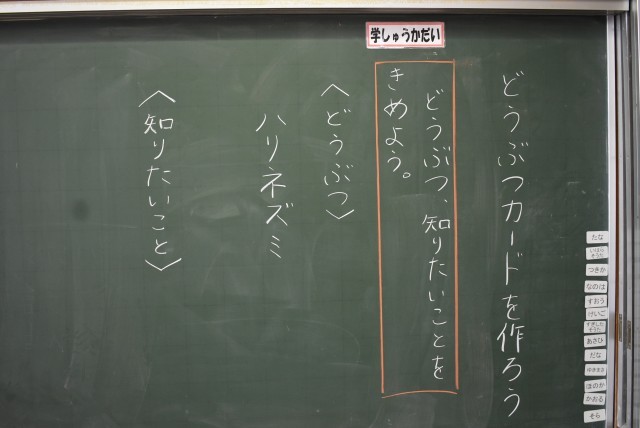 どうぶつカードを作ろう
学しゅうかだい
どうぶつ、知りたいことを
きめよう。
〈どうぶつ〉
ハリネズミ
〈知りたいこと〉
たな
つきか
なのは
すおう
けいご
あさひ
だな
ゆきまさ
ほのか
かおる
そら